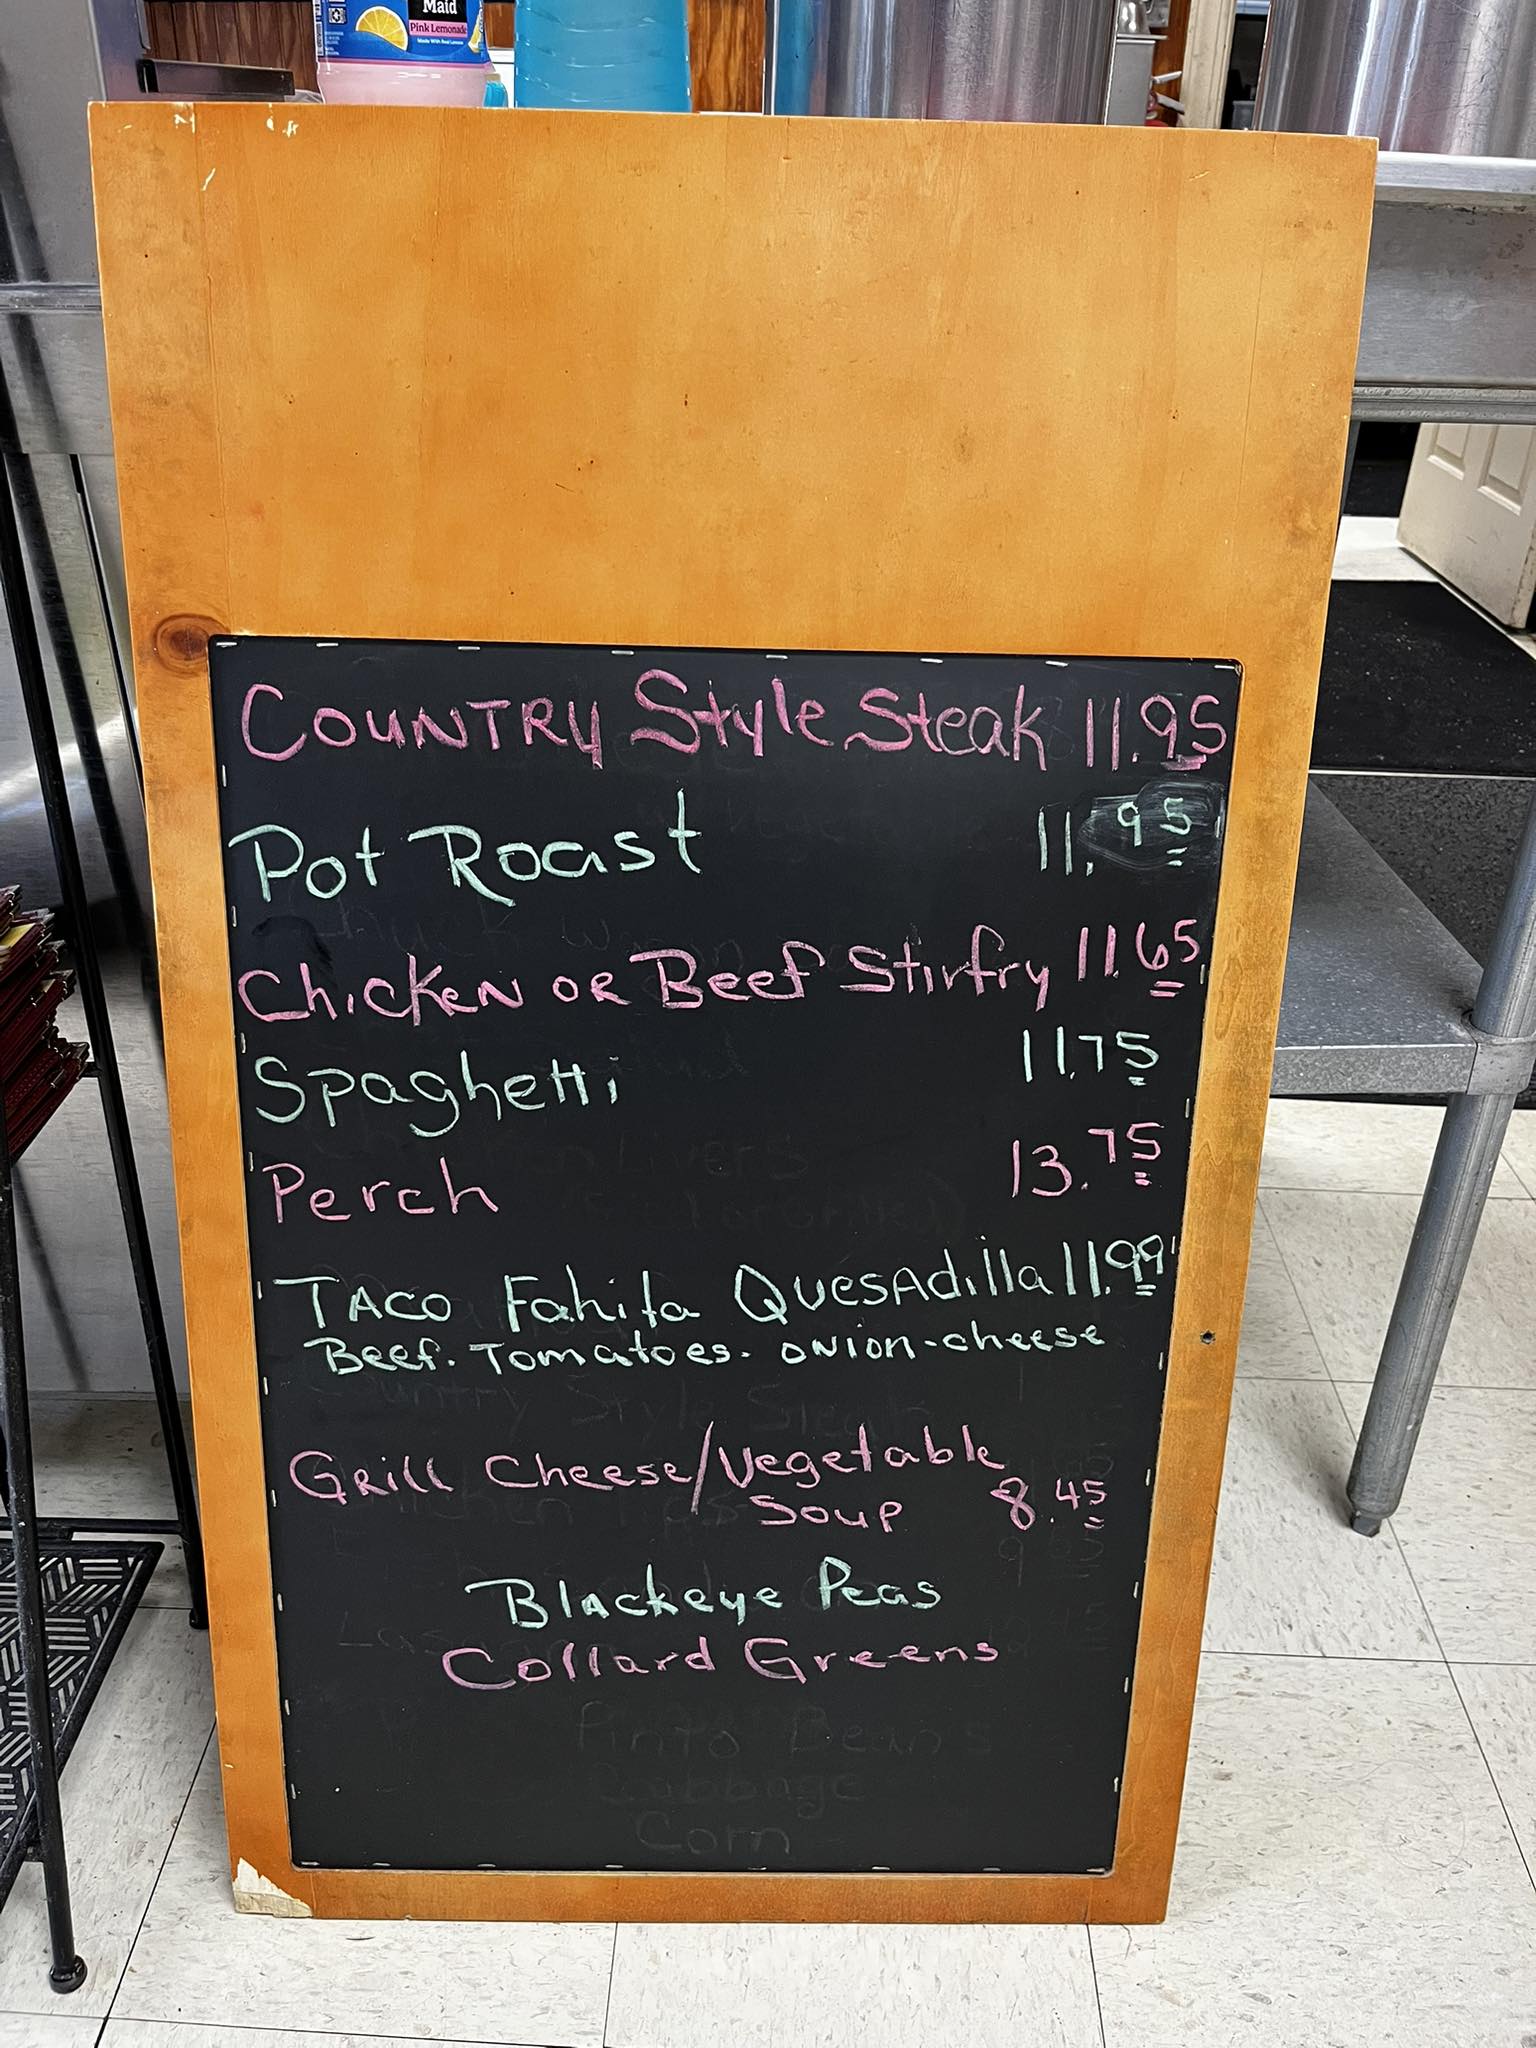 Maid
Pink Lemonade
Made With Real Lemons
COUNTRY Style Steak 11.95
Pot Roast 11.95
Chicken OR Beef Stirfry 11.65
Spaghetti 11.75
Perch 13.75
TACO Fahita Quesadilla 11.99
Beef. Tomatoes. onion-cheese
Grill Cheese/Vegetable
Soup 8.45
Blackeye Peas
Collard Greens
Pinto Beans
Cabbage
Corn